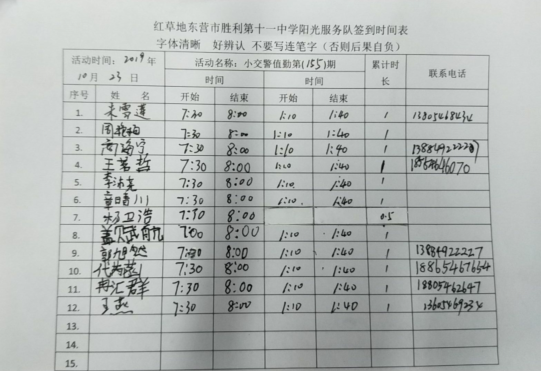 红草地东营市胜利第十一中学阳光服务队签到时间表
字体清晰 好辨认 不要写连笔字（否则后果自负）
活动时间：2019年10月23日 活动名称：小交警值勤第(155)期 累计时长 联系电话
时间 时间
序号 姓名 开始 结束 开始 结束
1. 7:30 8:00 1:10 1:40 1
2. 7:30 8:00 1:10 1:40 1
3. 7:30 8:00 1:10 1:40 1
4. 7:30 8:00 1:40 1
5. 7:30 8:00 1:10 1:40 1
6. 章晴川 7:30 8:00 1:10 1:40 1
7. 杨卫浩 8:00 0.5
8. 8:00 1:10 1:40 1
9. 7:30 8:00 1:10 1:40 1 13884922227
10. 7:30 8:00 1:10 1:40 1 18865467654
11. 冉汇群 7:30 8:00 1:10 1:40 1 18805462647
12. 王燕 7:30 8:00 1:10 1:40 1 13605469234
13.
14.
15.